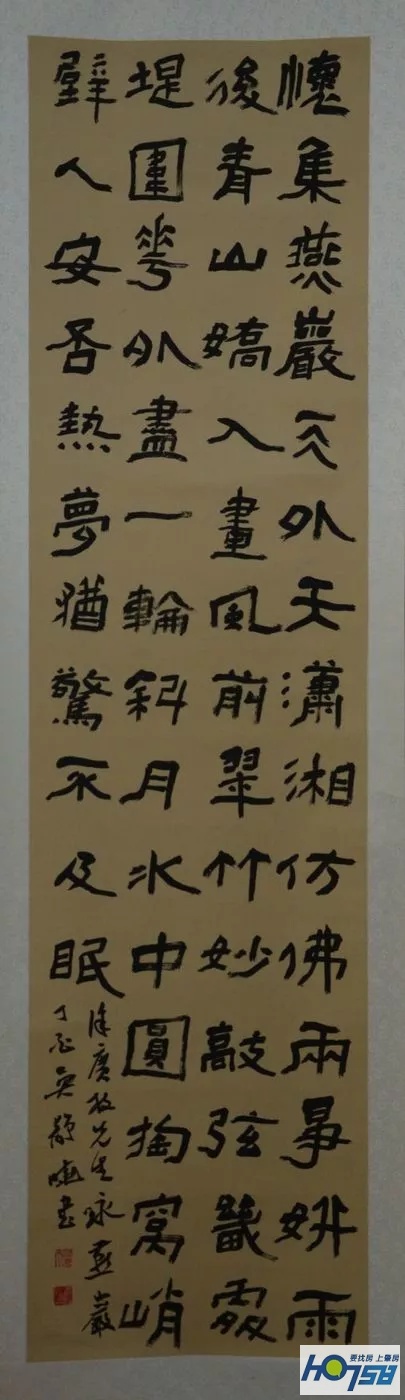 懷集燕巖天外天瀟湘仿佛兩爭妍雨
後青山嬌入畫風前翠竹妙敲弦幾處
堤圍花外盡一輪斜月水中圓掏窩峭
壁人安否熱夢猶驚不及眠
先生詠燕巖
丁亥吳靜書
要找房 上肇房
HO758